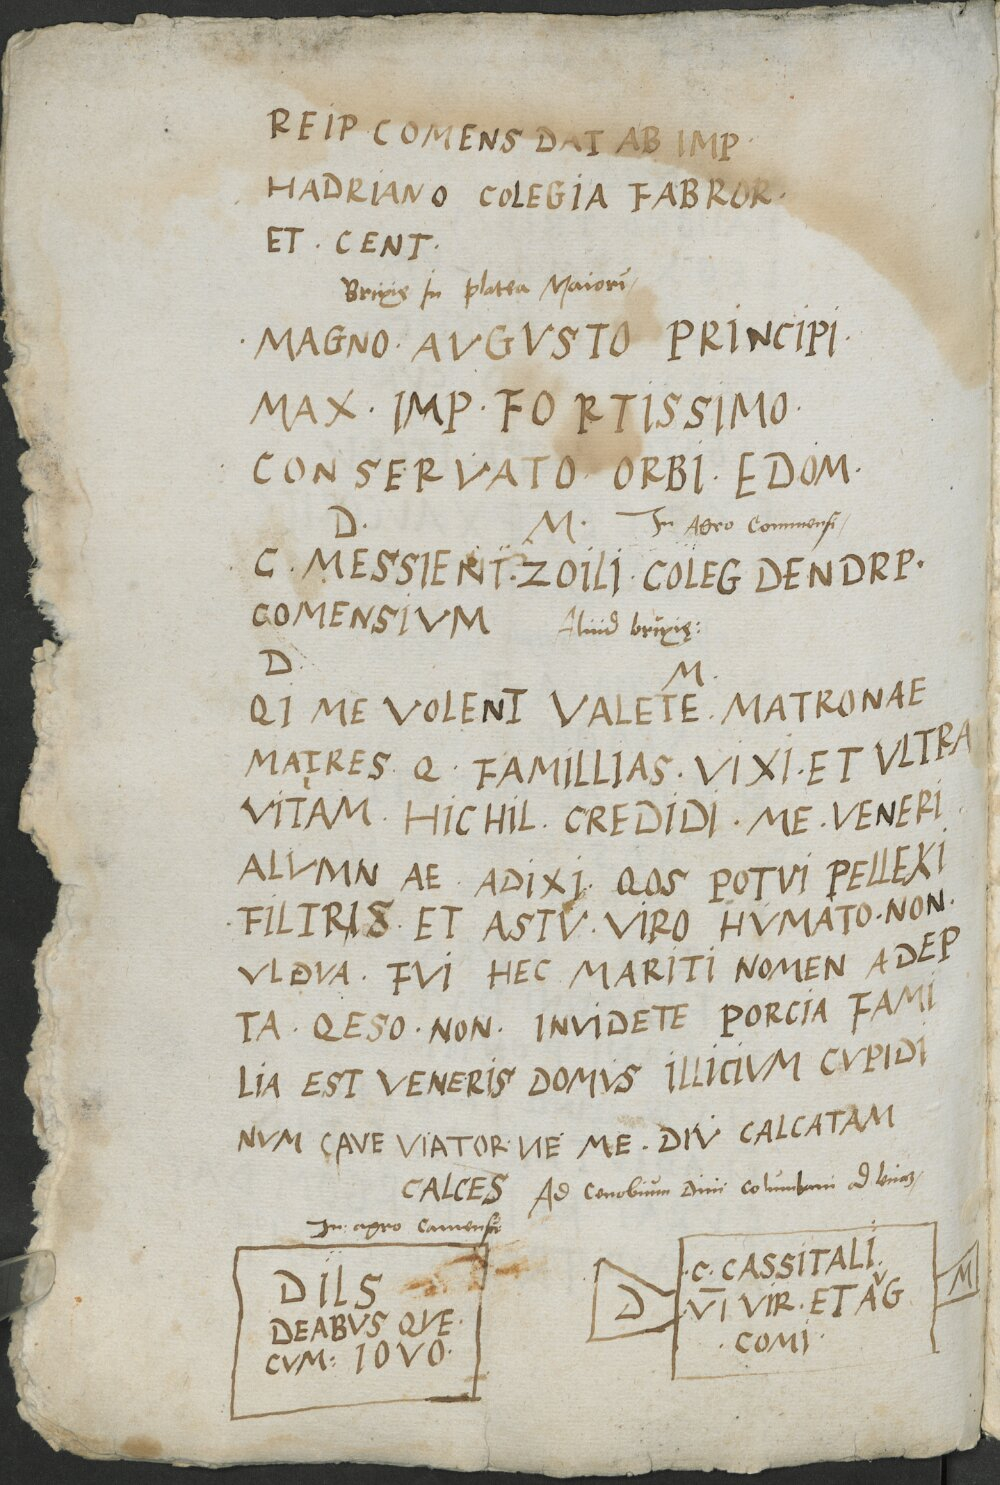 REIP COMENS DAT AB IMP·
HADRIANO COLEGIA FABROR·
ET · CENT·
Brixię in platea Maiori
·MAGNO· AVGVSTO PRINCIPI·
MAX · IMP· FORTISSIMO·
CONSERVATO· ORBI · EDOM·
D· M· In Agro Commensi
C · MESSIENI·ZOILI·COLEG DENDRP·
COMENSIVM Aliud brixię:
D M·
QI ME VOLENT VALETE · MATRONAE
MATRES Q · FAMILLIAS · VIXI·ET VLTRA
VITAM · HICHIL · CREDIDI · ME · VENERI
ALVMNAE · ADIXI· QOS POTVI PELLEXI
·FILTRIS· ET ASTV · VIRO HVMATO·NON·
VLDVA · FVI HEC MARITI NOMEN ADEP
TA · QESO · NON · INVIDETE PORCIA FAMI
LIA EST VENERIS DOMVS ILLICIVM CVPIDI
NVM CAVE VIATOR NE ME · DIV CALCATAM
CALCES Ad Cenobium Divi Columbani ad
In agro Comensi
DILS
DEABVS QVE·
CVM: IOVO·
D
·C· CASSITALI·
VI VIR·ET AVG
· COMI·
M